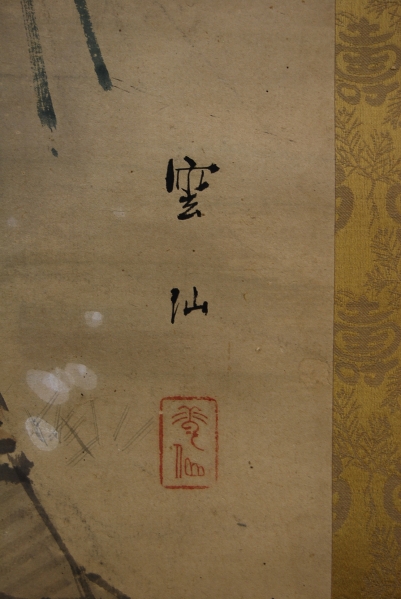 雲仙
雲仙